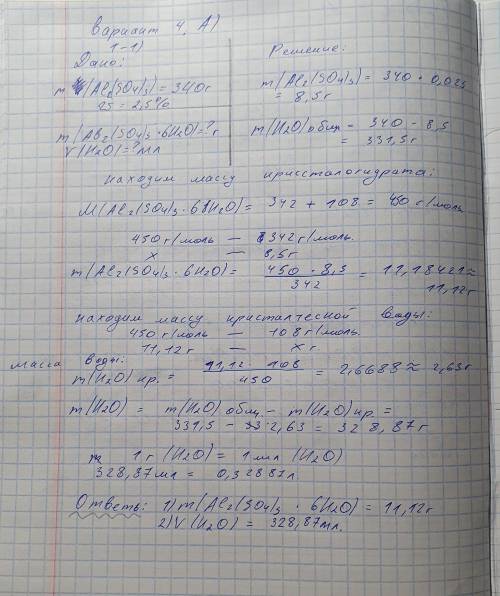 Вариант 4. А)
1-1)
Дано:
m (Al2(SO4)3) = 340г
= 2,5%
m(Al2(SO4)3 · 6H2O) = ? г
V(H2O) = ? мл
Решение:
m(Al2(SO4)3) = 340 · 0,025
= 8,5г
m(H2O) общ. = 340 - 8,5
= 331,5г
находим массу кристалогидрата:
M(Al2(SO4)3 · 6H2O) = 342 + 108 = 450 г/моль
450 г/моль — 342 г/моль.
x — 8,5г
m(Al2(SO4)3 · 6H2O) = 450 · 8,5 / 342 = 11,18421 ≈
11,12г
находим массу кристалической воды:
450 г/моль — 108 г/моль.
11,12г — x г
масса воды:
m(H2O) кр. = 11,12 · 108 / 450 = 2,6688 ≈ 2,63г
m(H2O) = m(H2O) общ. - m(H2O) кр. =
331,5 - 2,63 = 328,87г
1г (H2O) = 1 мл (H2O)
328,87мл = 0,32887л
Ответь: 1) m(Al2(SO4)3 · 6H2O) = 11,12г
2) V(H2O) = 328,87мл.